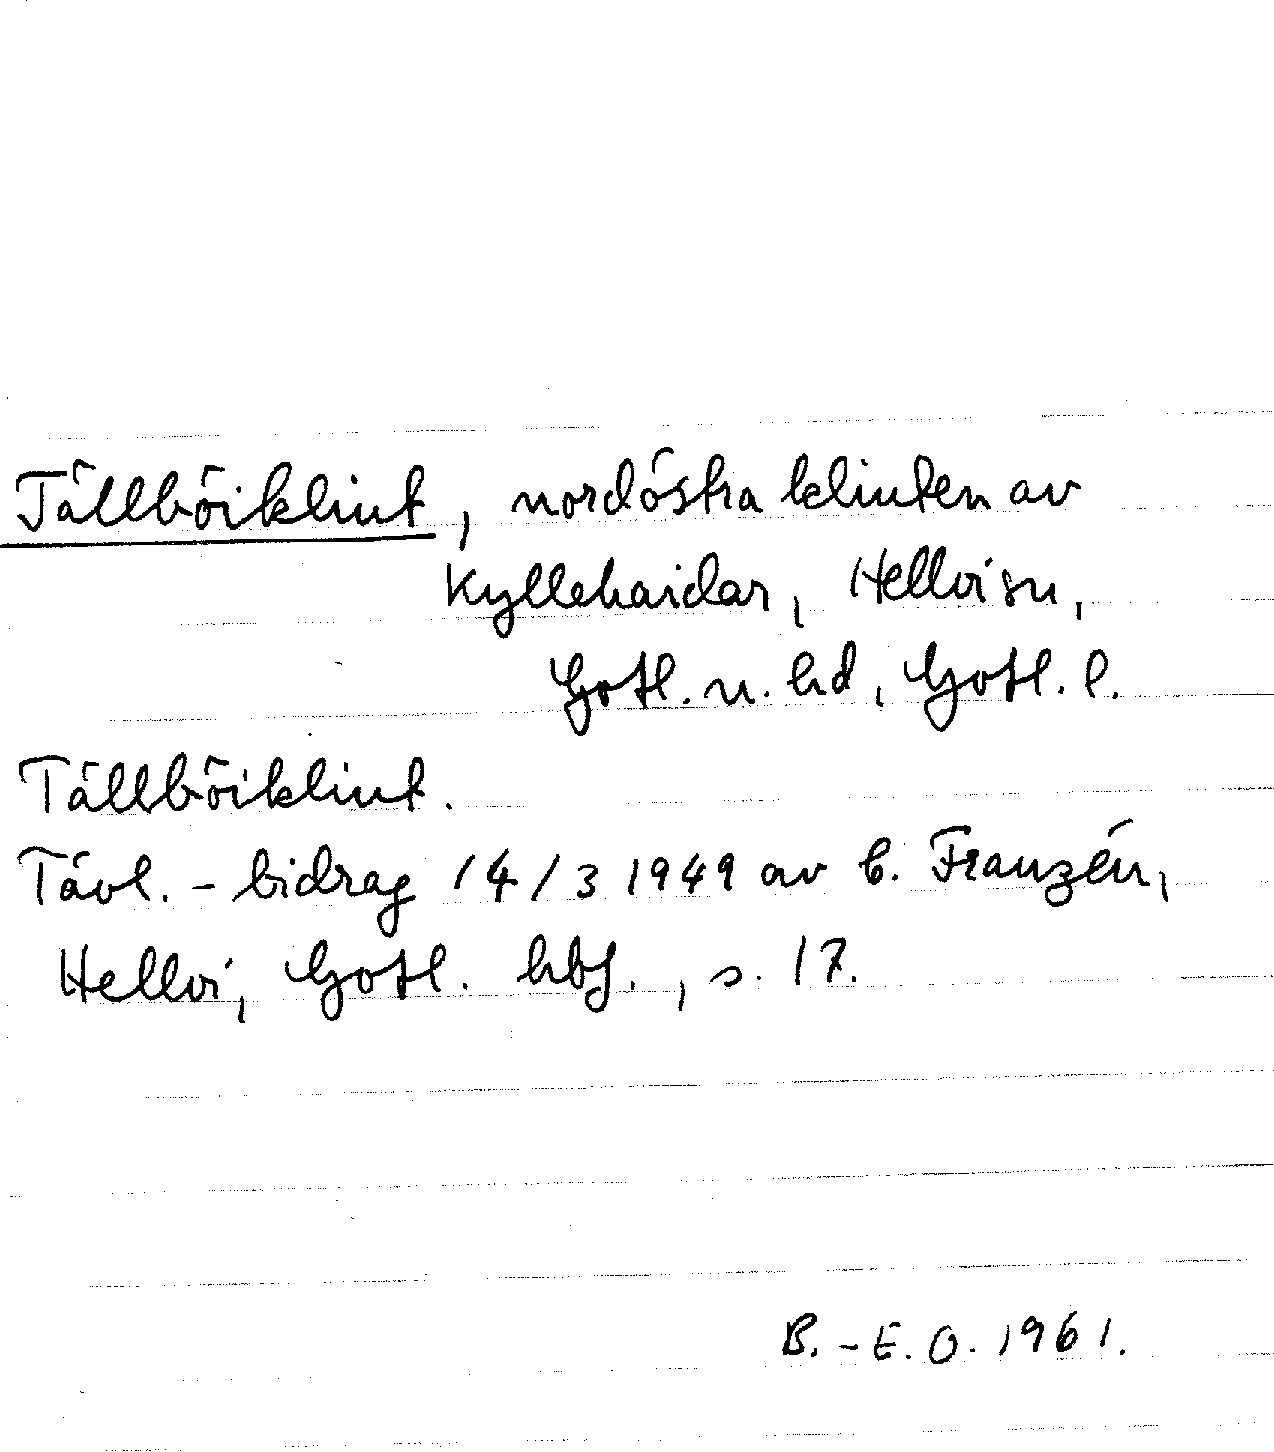 Tällböiklint, nordöstra klinten av
Kyllehaidar, Hellvi sn,
Gotl. n. hd, Gotl. l.
Tällböiklint.
Tävl. - bidrag 14/3 1949 av b. Franzén,
Hellvi, Gotl. hbf., s. 17.
B. - E. O. 1961.